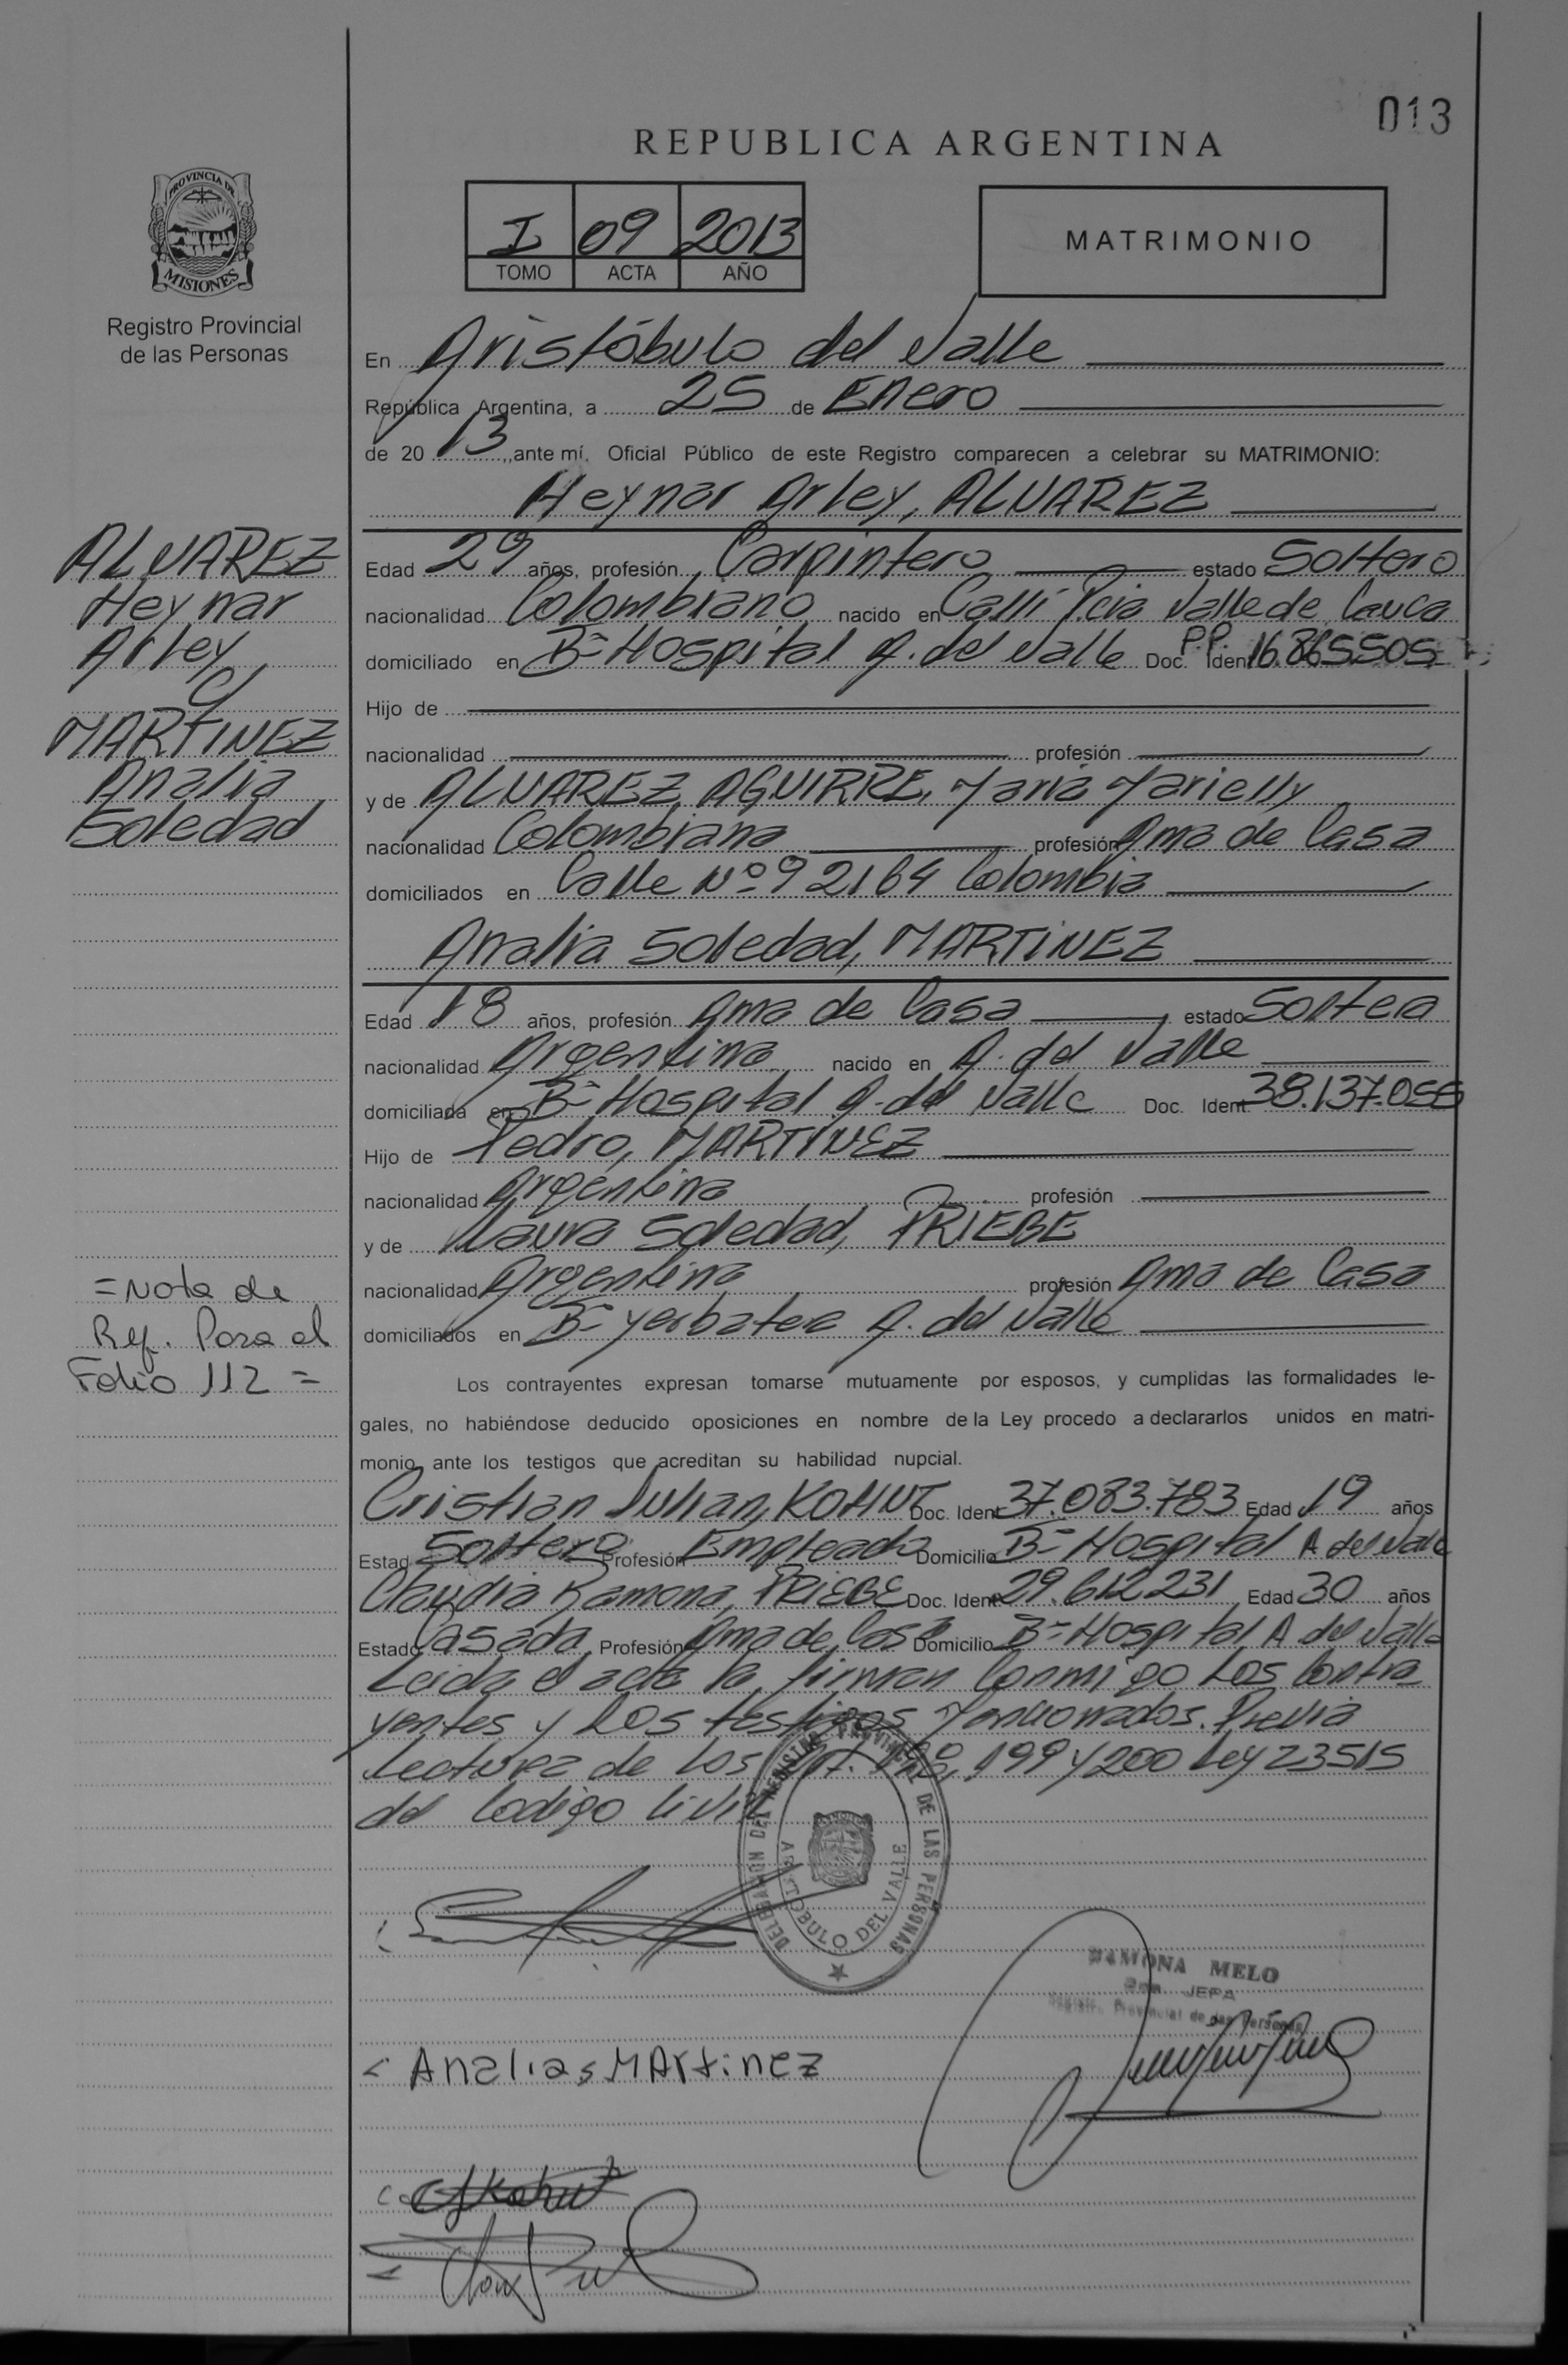 013
REPUBLICA ARGENTINA
PROVINCIA DE
MISIONES
Registro Provincial
de las Personas
I 09 2013
TOMO ACTA AÑO
MATRIMONIO
En Aristóbulo del Valle
República Argentina, a 25 de Enero
de 20 13, ante mí, Oficial Público de este Registro comparecen a celebrar su MATRIMONIO:
Heynar Arley, ALVAREZ
ALVAREZ
Heynar
Arley
C/
MARTINEZ
Analia
Soledad
Edad 29 años, profesión Carpintero estado Soltero
nacionalidad Colombiano nacido en Calli Pcia Valle de Cauca
domiciliado en B= Hospital A. del Valle Doc. Ident P.P. 16.865.505
Hijo de
nacionalidad profesión
y de ALVAREZ AGUIRRE, Maria Marielly
nacionalidad Colombiana profesión Ama de Casa
domiciliados en Calle Nº 9 2164 Colombia
Analia Soledad, MARTINEZ
Edad 18 años, profesión Ama de Casa estado Soltera
nacionalidad Argentina nacido en A. del Valle
domiciliada en B= Hospital A. del Valle Doc. Ident 38.137.056
Hijo de Pedro, MARTINEZ
nacionalidad Argentina profesión
y de Laura Soledad, PRIEBE
nacionalidad Argentina profesión Ama de Casa
domiciliados en B= Yerbatera A. del Valle
= Nota de
Ref. Pasa al
Folio 112 =
Los contrayentes expresan tomarse mutuamente por esposos, y cumplidas las formalidades le-
gales, no habiéndose deducido oposiciones en nombre de la Ley procedo a declararlos unidos en matri-
monio ante los testigos que acreditan su habilidad nupcial.
Cristian Julian, KOHUT Doc. Ident 37.083.783 Edad 19 años
Estad Soltero Profesión Empleado Domicilio B= Hospital A del Valle
Claudia Ramona, PRIEBE Doc. Ident 29.612.231 Edad 30 años
Estado Casada Profesión Ama de Casa Domicilio B= Hospital A del Valle
Leida el acta la firman Conmigo Los Contra
yentes y Los testigos Mencionados. Previa
Lectura de Los Art. 198, 199 y 200 Ley 23515
del Codigo Civil
DELEGACIÓN DEL REGISTRO PROVINCIAL DE LAS PERSONAS
ARISTOBULO DEL VALLE
RAMONA MELO
JEFA
Registro Provincial de las Personas
Analia S. MArtinez
CJKohut